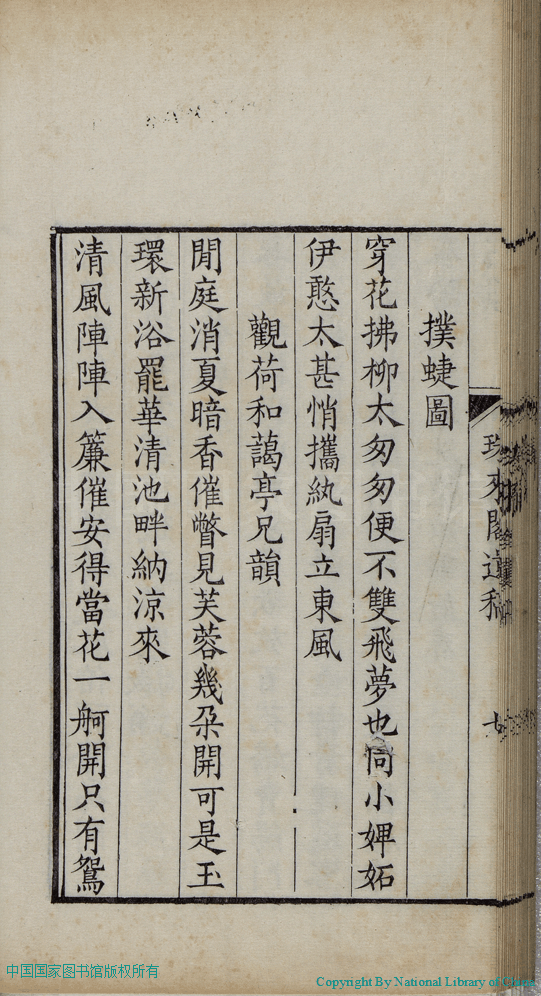 撲蜨圖
穿花拂柳太匆匆便不雙飛夢也同小婢妬
伊憨太甚悄攜紈扇立東風
觀荷和藹亭兄韻
閒庭消夏暗香催瞥見芙蓉幾朶開可是玉
環新浴罷華清池畔納涼來
清風陣陣入簾催安得當花一舸開只有鴛
中国国家图书馆版权所有
Copyright By National Library of China